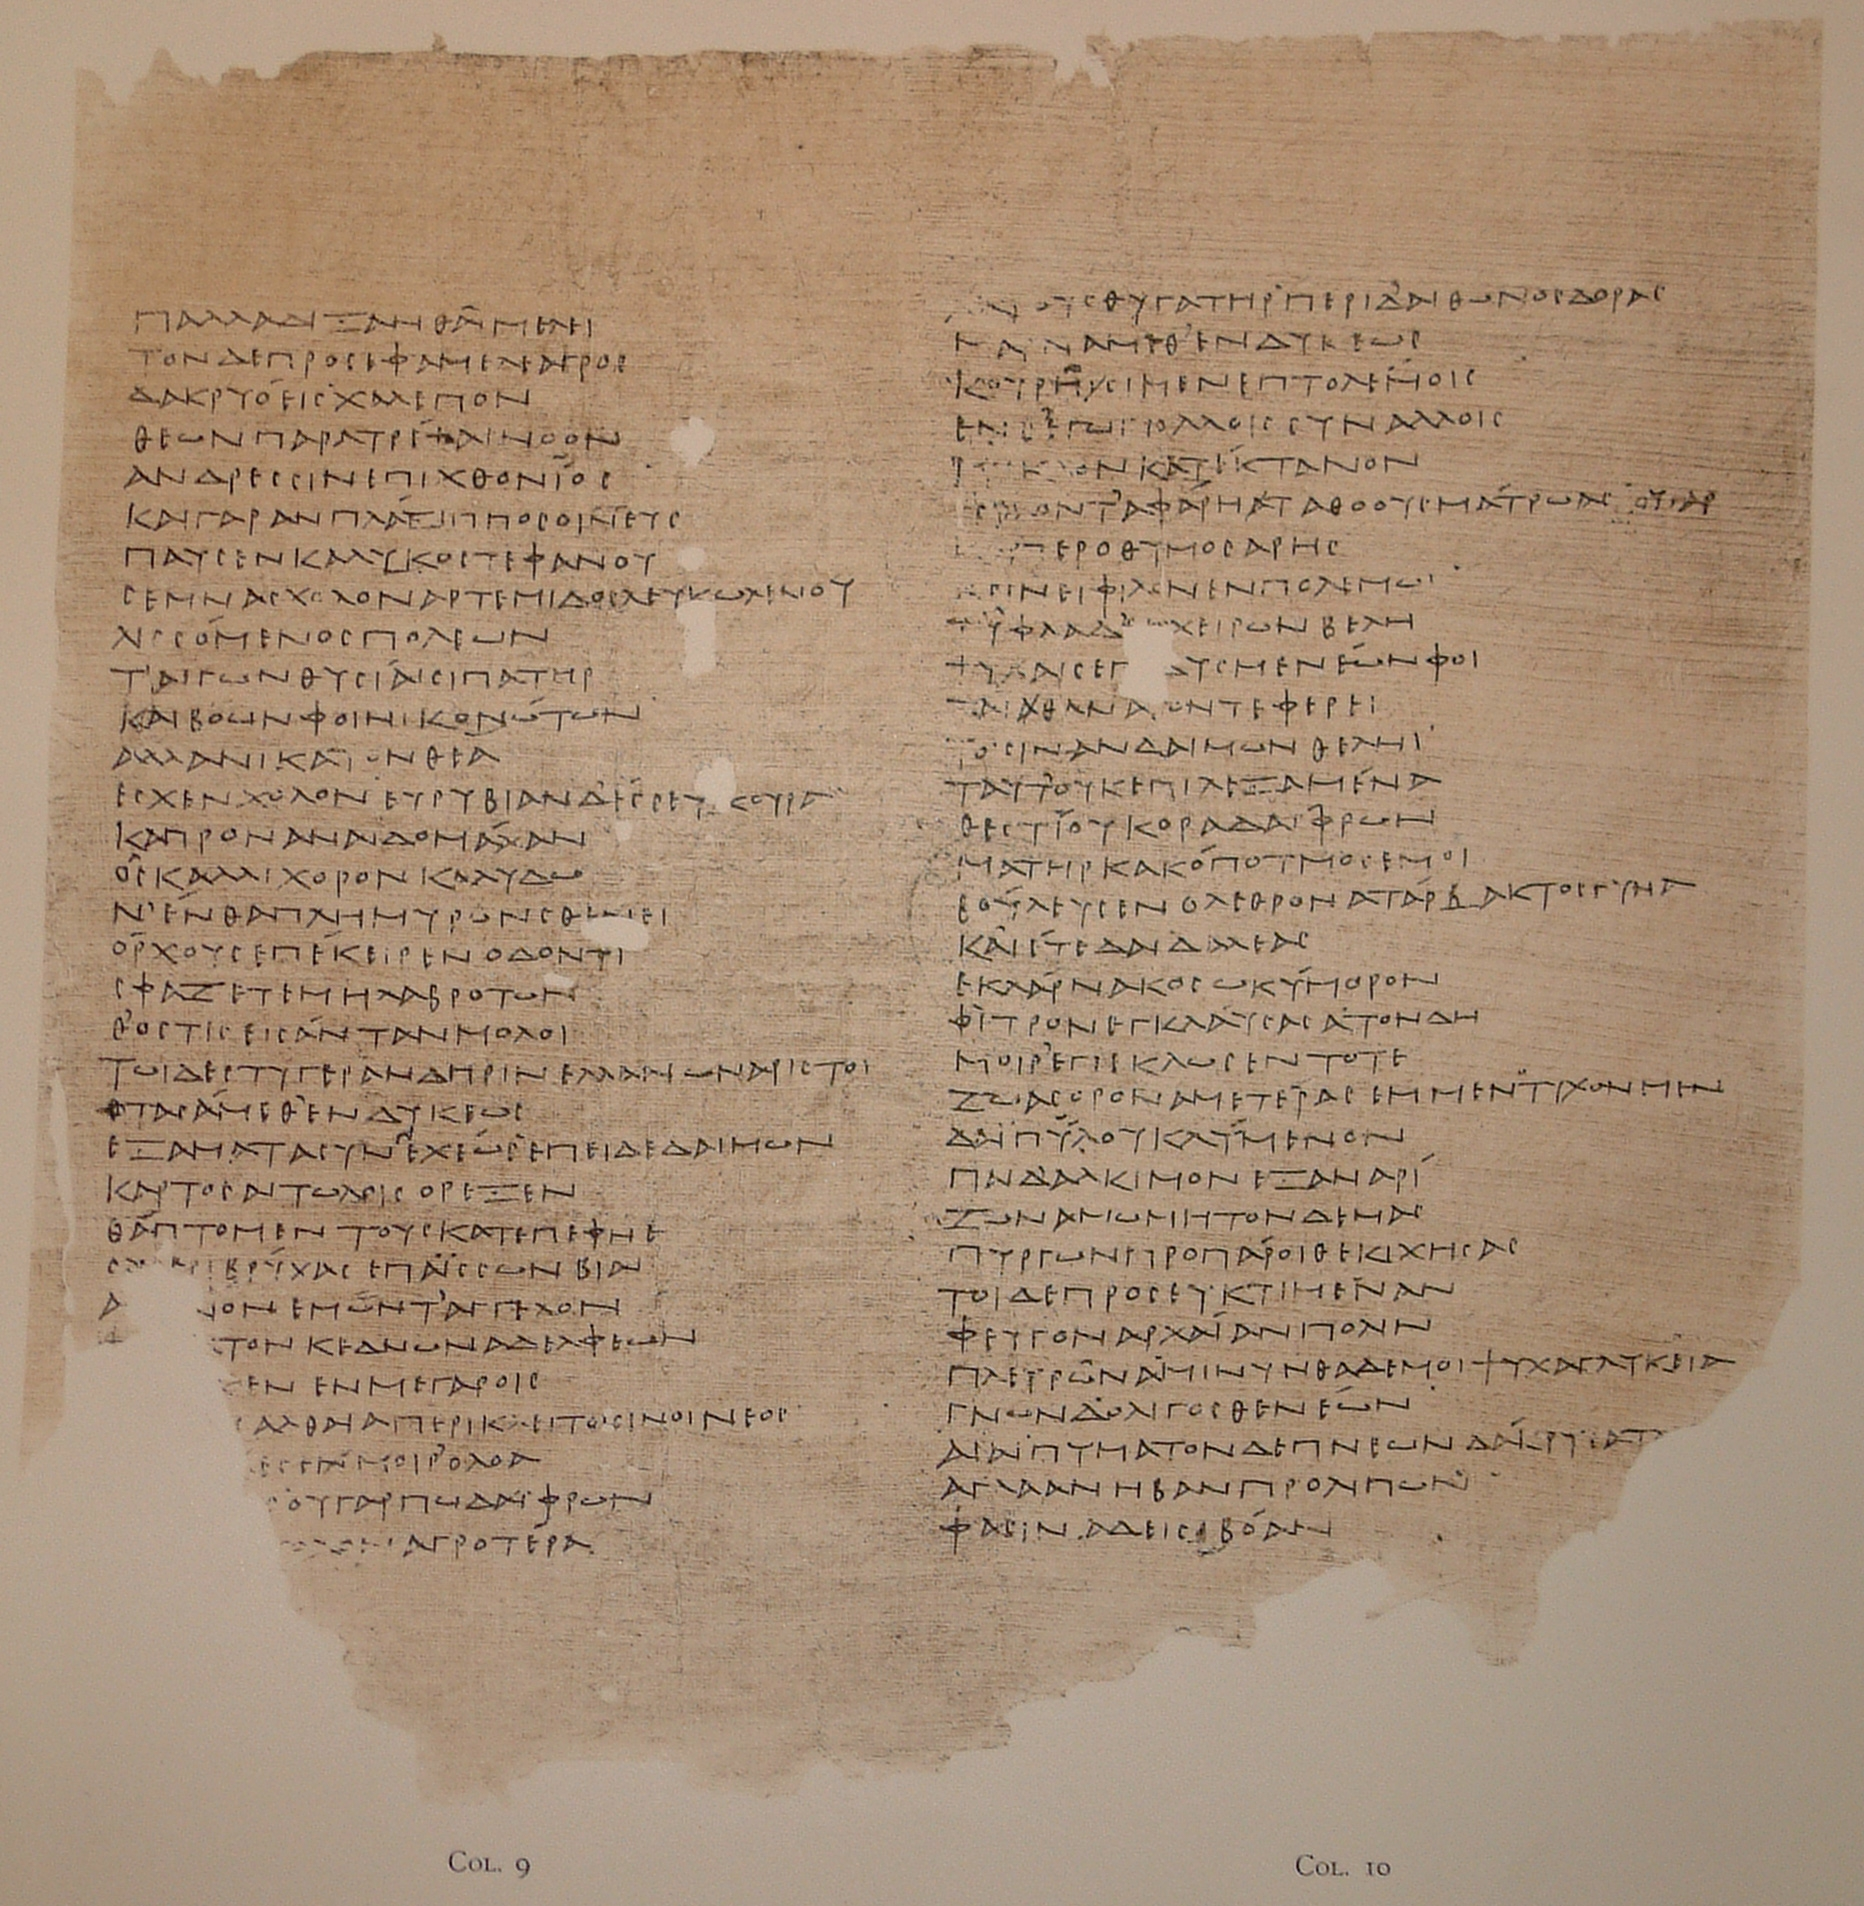 ΠΑΛΛΑΔΙ ΞΑΝΘΑΙ ΜΕΛΕΙ
ΤΟΝ ΔΕ ΠΡΟΣΕΦΑ ΜΕΛΕΑΓΡΟΣ
ΔΑΚΡΥΟΕΙΣ ΧΑΛΕΠΟΝ
ΘΕΩΝ ΠΑΡΑΤΡΕΨΑΙ ΝΟΟΝ
ΑΝΔΡΕΣΣΙΝ ΕΠΙΧΘΟΝΙΟΣ
ΚΑΙ ΓΑΡ ΑΝ ΠΛΑΞΙΠΠΟΣ ΟΙΝΕΥΣ
ΠΑΥΣΕΝ ΚΑΛΥΚΟΣΤΕΦΑΝΟΥ
ΣΕΜΝΑΣ ΧΟΛΟΝ ΑΡΤΕΜΙΔΟΣ ΛΕΥΚΩΛΕΝΟΥ
ΛΙΣΣΟΜΕΝΟΣ ΠΟΛΕΩΝ
Τ' ΑΙΓΩΝ ΘΥΣΙΑΙΣΙ ΠΑΤΗΡ
ΚΑΙ ΒΟΩΝ ΦΟΙΝΙΚΟΝΩΤΩΝ
ΑΛΛ ΑΝΙΚΑΤΟΝ ΘΕΑ
ΕΣΧΕΝ ΧΟΛΟΝ ΕΥΡΥΒΙΑΝ Δ' ΕΣΣΕΥ ΚΟΥΡΑ
ΚΑΠΡΟΝ ΑΝΑΙΔΟΜΑΧΑΝ
ΕΣ ΚΑΛΛΙΧΟΡΟΝ ΚΑΛΥΔΩ
Ν' ΕΝΘΑ ΠΛΗΜΥΡΩΝ ΣΘΕΝΕΙ
ΟΡΧΟΥΣ ΕΠΕΚΕΙΡΕΝ ΟΔΟΝΤΙ
ΣΦΑΖΕ ΤΕ ΜΗΛΑ ΒΡΟΤΩΝ
Θ' ΟΣΤΙΣ ΕΙΣΑΝΤΑΝ ΜΟΛΟΙ
ΤΩΙ ΔΕ ΣΤΥΓΕΡΑΝ ΔΗΡΙΝ ΕΛΛΑΝΩΝ ΑΡΙΣΤΟΙ
ΣΤΑΣΑΜΕΘ' ΕΝΔΥΚΕΩΣ
ΕΞ ΑΜΑΤΑ ΣΥΝΕΧΕΩΣ ΕΠΕΙ ΔΕ ΔΑΙΜΩΝ
ΚΑΡΤΟΣ ΑΙΤΩΛΟΙΣ ΟΡΕΞΕΝ
ΘΑΠΤΟΜΕΝ ΤΟΥΣ ΚΑΤΕΠΕΦΝΕ
ΣΥΣ ΕΡΙΒΡΥΧΑΣ ΕΠΑΪΣΣΩΝ ΒΙΑ
Α ΟΝ ΕΜΩΝ Τ' ΑΓΓΕΛΟΝ
ΤΟΝ ΚΕΔΝΩΝ ΑΔΕΛΦΕΩΝ
ΚΕΝ ΕΝ ΜΕΓΑΡΟΙΣ
Σ ΑΛΘΑΙΑ ΠΕΡΙΚΛΕΙΤΟΙΣΙΝ ΟΙΝΕΟΣ
ΕΣΕ ΜΟΙΡ' ΟΛΟΑ
Σ ΟΥ ΓΑΡ ΠΩ ΔΑΪΦΡΩΝ
ΑΓΡΟΤΕΡΑ
ΤΟΥΣ ΘΥΓΑΤΗΡ ΠΕΡΙ Δ' ΑΙΘΩΝΟΣ ΔΟΡΑΣ
ΜΑΡΝΑΜΕΘ' ΕΝΔΥΚΕΩΣ
ΚΟΥΡΗΣΙ ΜΕΝΕΠΤΟΛΕΜΟΙΣ
ΕΝΘ ΕΓΩ ΠΟΛΛΟΙΣ ΣΥΝ ΑΛΛΟΙΣ
ΙΦΙΚΛΟΝ ΚΑΤΕΚΤΑΝΟΝ
ΕΣΘΛΟΝ Τ' ΑΦΑΡΗΑ ΤΑ ΘΟΟΥΣ ΜΑΤΡΩΑΣ ΟΥ ΓΑΡ
ΚΑΡΤΕΡΟΘΥΜΟΣ ΑΡΗΣ
ΚΡΙΝΕΙ ΦΙΛΟΝ ΕΝ ΠΟΛΕΜΩΙ
ΤΥΦΛΑ Δ ΕΚ ΧΕΙΡΩΝ ΒΕΛΗ
ΨΥΧΑΙΣ ΕΠ ΔΥΣΜΕΝΕΩΝ ΦΟΙ
ΤΑΙ ΘΑΝΑΤΟΝ ΤΕ ΦΕΡΕΙ
ΤΟΙΣΙΝ ΑΝ ΔΑΙΜΩΝ ΘΕΛΗΙ
ΤΑΥΤ' ΟΥΚ ΕΠΙΛΕΞΑΜΕΝΑ
ΘΕΣΤΙΟΥ ΚΟΡΑ ΔΑΪΦΡΩΝ
ΜΑΤΗΡ ΚΑΚΟΠΟΤΜΟΣ ΕΜΟΙ
ΒΟΥΛΕΥΣΕΝ ΟΛΕΘΡΟΝ ΑΤΑΡΒΑΚΤΟΣ ΓΥΝΑ
ΚΑΙΕ ΤΕ ΔΑΙΔΑΛΕΑΣ
ΕΚ ΛΑΡΝΑΚΟΣ ΩΚΥΜΟΡΟΝ
ΦΙΤΡΟΝ ΕΓΚΛΑΥΣΑΣΑ ΤΟΝ ΔΗ
ΜΟΙΡ' ΕΠΕΚΛΩΣΕΝ ΤΟΤΕ
ΖΩΑΣ ΟΡΟΝ ΑΜΕΤΕΡΑΣ ΕΜΜΕΝ ΤΥΧΟΝ ΜΕΝ
ΔΑΪΠΥΛΟΥ ΚΛΥΜΕΝΟΝ
ΠΑΙΔ' ΑΛΚΙΜΟΝ ΕΞΑΝΑΡΙ
ΖΩΝ ΑΜΩΜΗΤΟΝ ΔΕΜΑΣ
ΠΥΡΓΩΝ ΠΡΟΠΑΡΟΙΘΕ ΚΙΧΗΣΑΣ
ΤΟΙ ΔΕ ΠΡΟΣ ΕΥΚΤΙΜΕΝΑΝ
ΦΕΥΓΟΝ ΑΡΧΑΙΑΝ ΠΟΛΙΝ
ΠΛΕΥΡΩΝΑ ΜΙΝΥΝΘΑ ΔΕ ΜΟΙ ΨΥΧΑ ΓΛΥΚΕΙΑ
ΓΝΩΝ Δ' ΟΛΙΓΟΣΘΕΝΕΩΝ
ΑΙΑΙ ΠΥΜΑΤΟΝ ΔΕ ΠΝΕΩΝ ΔΑΚΡΥΣΑ Τ
ΑΓΛΑΑΝ ΗΒΑΝ ΠΡΟΛΙΠΩΝ
ΦΑΣΙΝ ΑΔΕΙΣΙΒΟΑΝ
COL. 9
COL. 10